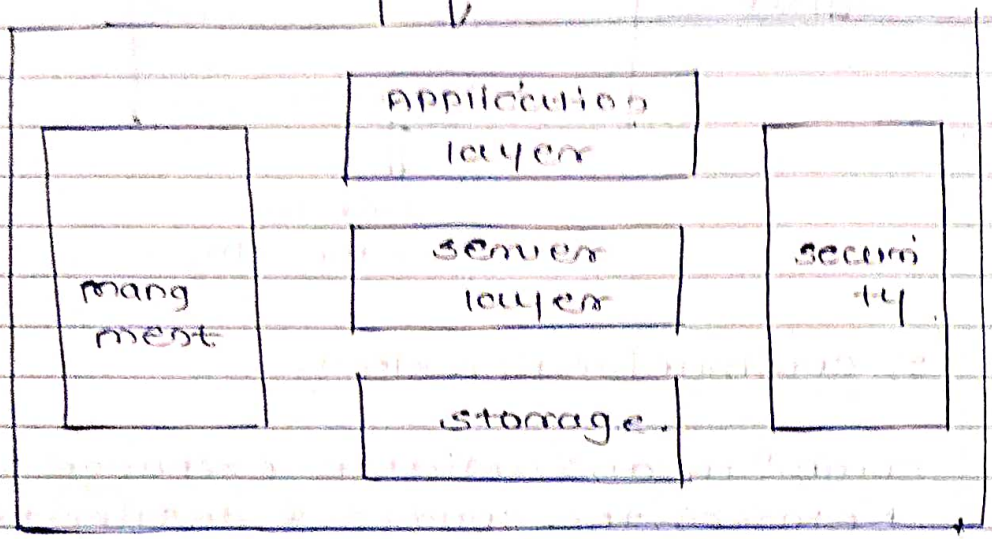 Application
layer
mang
ment
server
layer
securi
ty
storage.